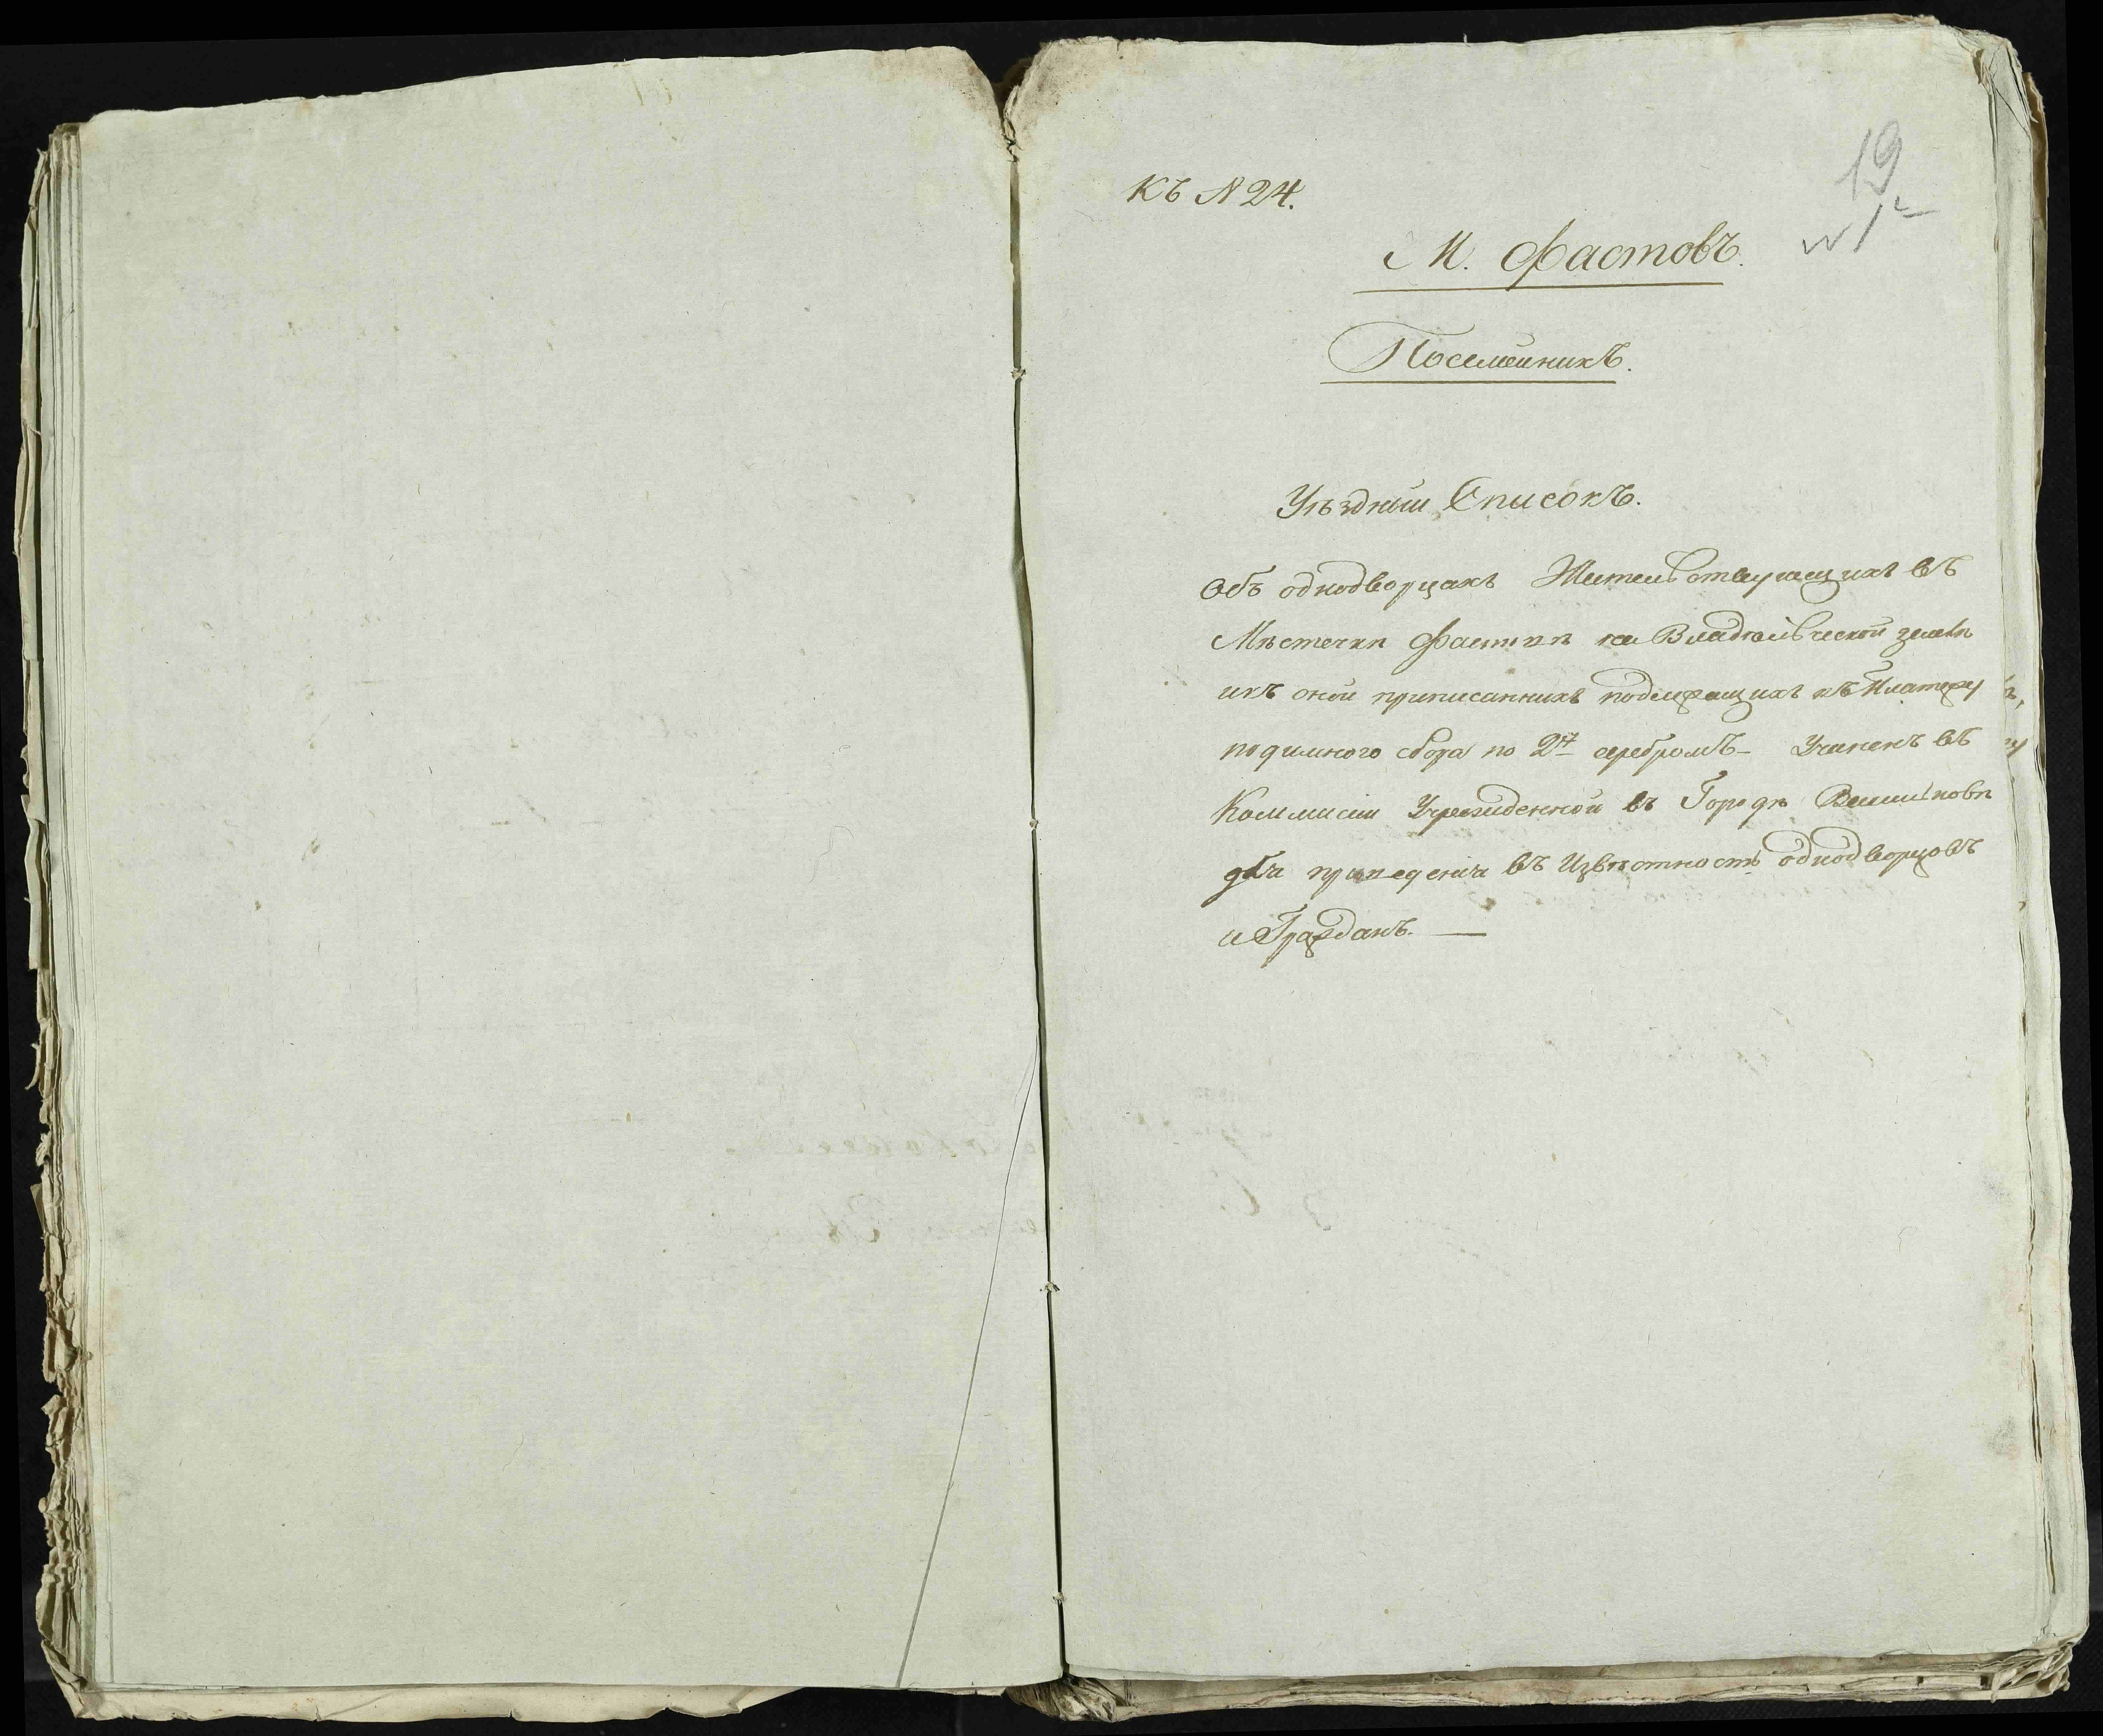 19
Къ N 24.
№ 1
М. Фастовъ.
Посемейникъ.
Уѣздный Списокъ.
Объ однодворцахъ Жительствующихъ въ
Мѣстечкѣ Фастовѣ на Владельческой землѣ
икъ оной приписанныхъ подлежащихъ къ Платежу
подимного сбора по 2 серебромъ – Учиненъ въ
Коммисіи Учрежденной въ Городѣ Васильковѣ
для приведенія въ Извѣстность однодворцовъ
и Гражданъ. —